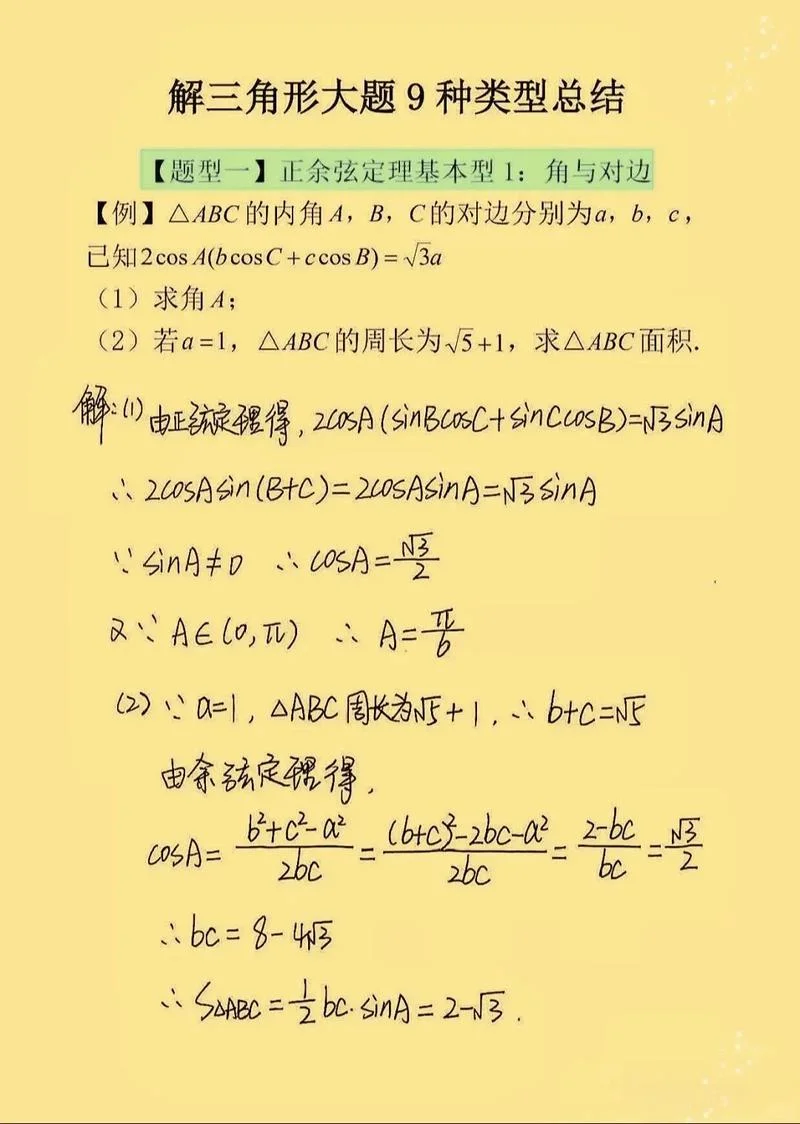 解三角形大题 9 种类型总结
【题型一】正余弦定理基本型 1：角与对边
【例】△ABC 的内角 A，B，C 的对边分别为 a，b，c，
已知 2cos A(bcosC+ccosB)=√3a
（1）求角 A；
（2）若 a=1，△ABC 的周长为√5+1，求△ABC 面积.
解:(1) 由正弦定理得, 2cosA(sinBcosC+sinCcosB)=√3sinA
∴ 2cosAsin(B+C)=2cosAsinA=√3sinA
∵ sinA≠0 ∴ cosA=√3/2
又∵ A∈(0,π) ∴ A=π/6
(2) ∵ a=1, △ABC周长为√5+1, ∴ b+c=√5
由余弦定理得,
cosA=(b²+c²-a²)/2bc=((b+c)²-2bc-a²)/2bc=(2-bc)/bc=√3/2
∴bc=8-4√3
∴S△ABC=1/2bc·sinA=2-√3.